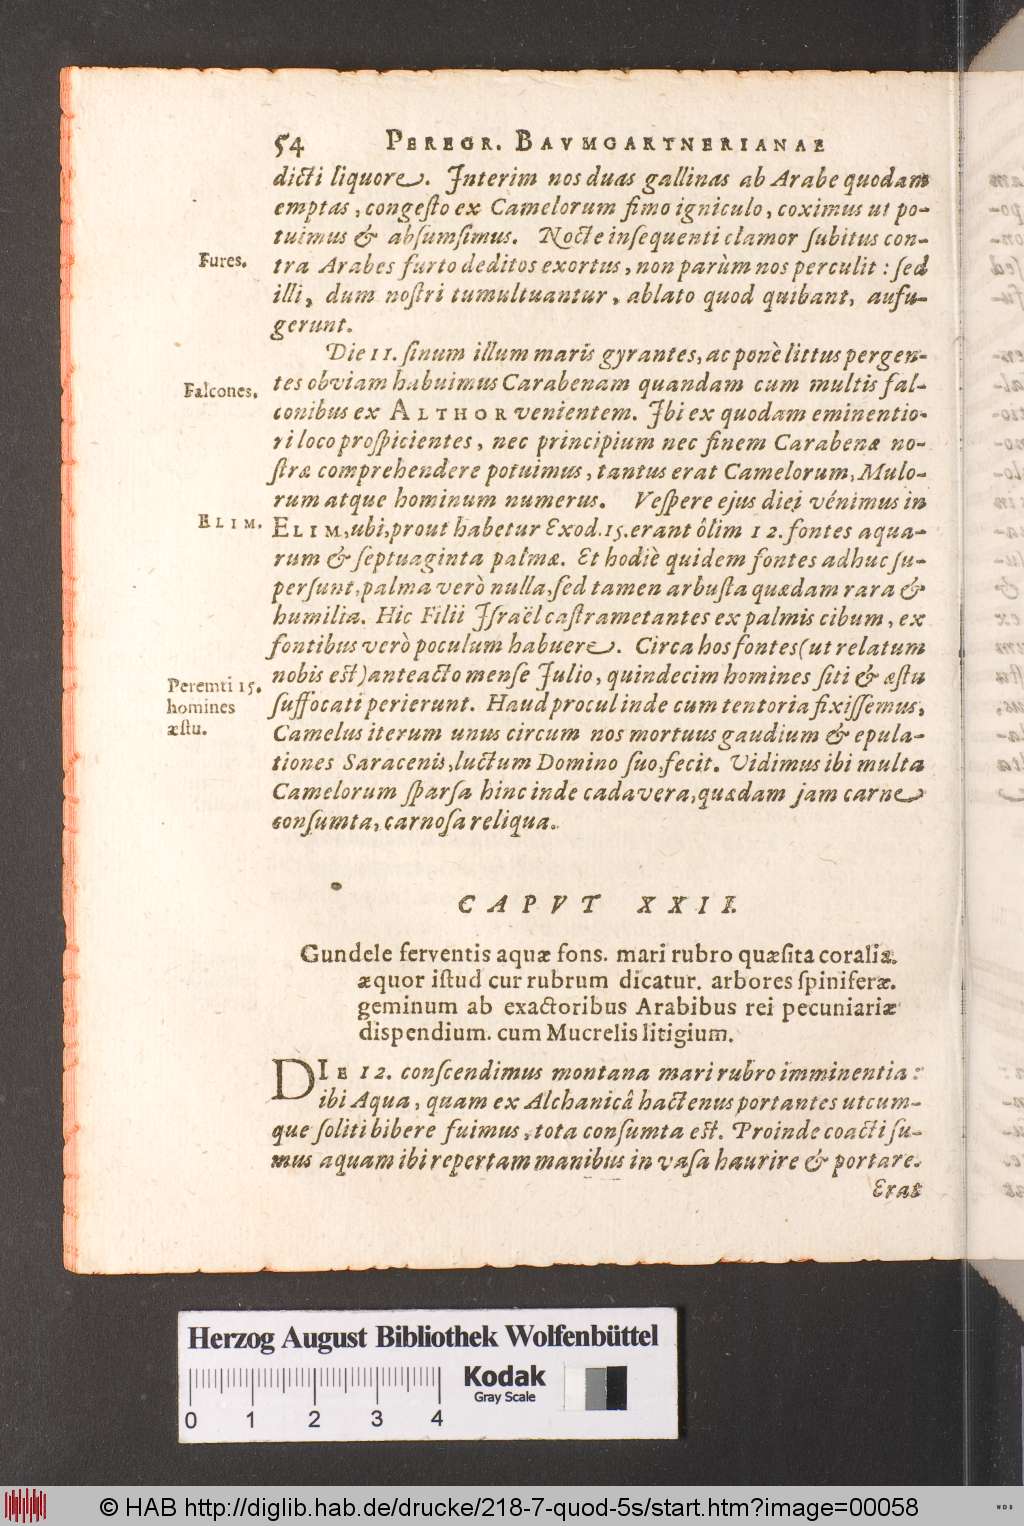 54 PEREGR. BAVMGARTNERIANAE
dicti liquore. Interim nos duas gallinas ab Arabe quodam
emptas, congeſto ex Camelorum fimo igniculo, coximus ut po-
tuimus & abſumſimus. Nocte inſequenti clamor ſubitus con-
Fures.
tra Arabes furto deditos exortus, non parùm nos perculit: ſed
illi, dum noſtri tumultuantur, ablato quod quibant, aufu-
gerunt.
Die 11. ſinum illum maris gyrantes, ac ponè littus pergen-
Falcones.
tes obviam habuimus Carabenam quandam cum multis fal-
conibus ex ALTHOR venientem. Ibi ex quodam eminentio-
ri loco proſpicientes, nec principium nec finem Carabenæ no-
ſtræ comprehendere potuimus, tantus erat Camelorum, Mulo-
rum atque hominum numerus. Veſpere ejus diei vénimus in
ELIM.
ELIM, ubi, prout habetur Exod. 15. erant ôlim 12. fontes aqua-
rum & ſeptuaginta palmæ. Et hodiè quidem fontes adhuc ſu-
perſunt, palma verò nulla, ſed tamen arbuſta quædam rara &
humilia. Hic Filii Iſraël caſtrametantes ex palmis cibum, ex
fontibus verò poculum habuere. Circa hos fontes (ut relatum
nobis eſt) anteacto menſe Julio, quindecim homines ſiti & æſtu
Peremti 15.
homines
æſtu.
ſuffocati perierunt. Haud procul inde cum tentoria fixiſſemus,
Camelus iterum unus circum nos mortuus gaudium & epula-
tiones Saracenis, luctum Domino ſuo, fecit. Vidimus ibi multa
Camelorum ſparſa hinc inde cadavera, quædam jam carne
conſumta, carnoſa reliqua.
CAPVT XXII.
Gundele ferventis aquæ fons. mari rubro quæſita coralia.
æquor iſtud cur rubrum dicatur. arbores ſpiniferæ.
geminum ab exactoribus Arabibus rei pecuniariæ
diſpendium. cum Mucrelis litigium.
DIE 12. conſcendimus montana mari rubro imminentia:
ibi Aqua, quam ex Alchanicâ hactenus portantes utcum-
que ſoliti bibere fuimus, tota conſumta eſt. Proinde coacti ſu-
mus aquam ibi repertam manibus in vaſa haurire & portare.
Erat
Herzog August Bibliothek Wolfenbüttel
Kodak
Gray Scale
0 1 2 3 4
© HAB http://diglib.hab.de/drucke/218-7-quod-5s/start.htm?image=00058